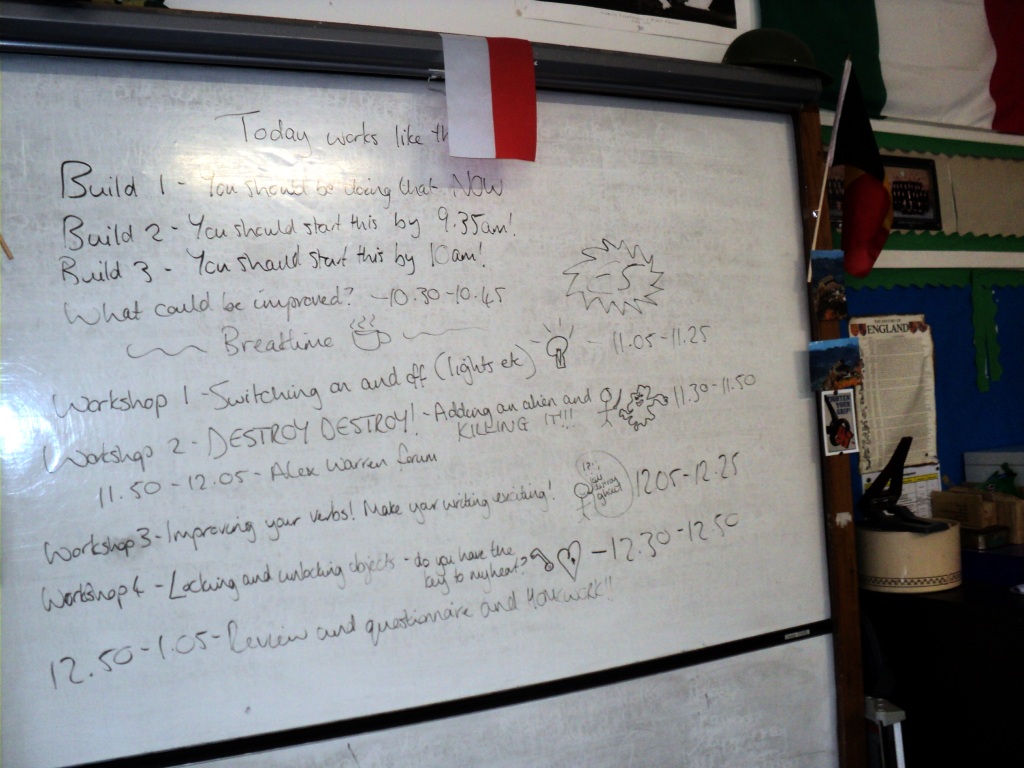 Today works like th
Build 1 - You should be doing that NOW
Build 2 - You should start this by 9.35am!
Build 3 - You should start this by 10am!
What could be improved? - 10.30-10.45
- 5
Breaktime
Workshop 1 - Switching on and off (lights etc) - 11.05-11.25
Workshop 2 - DESTROY DESTROY! - Adding an alien and
KILLING IT!!! 11.30-11.50
11.50 - 12.05 - Alex Warren forum
Workshop 3 - Improving your verbs! Make your writing exciting! 1205-12.25
Workshop 4 - Locking and unlocking objects - do you have the
key to my heart? - 12.30-12.50
12.50-1.05 - Review and questionnaire and HOMEWORK!!
ENGLAND